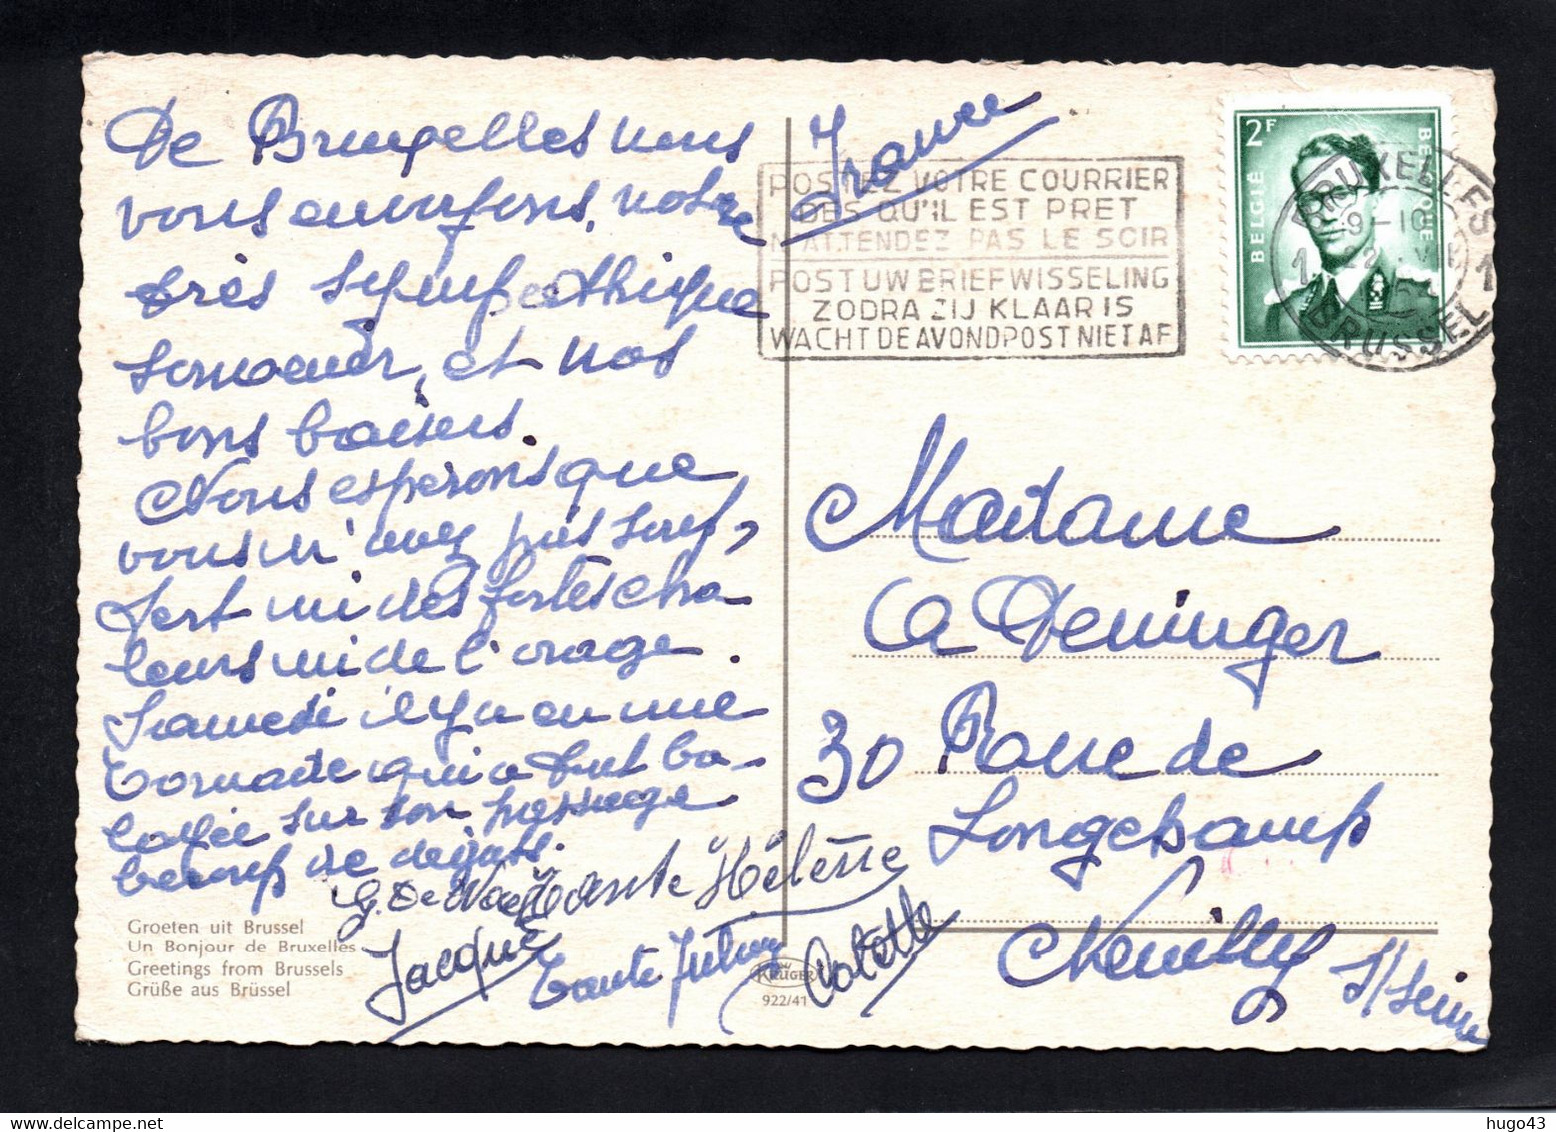 De Bruxelles nous
vous envoyons, notre
très sympathique
souvenir, et nos
bons baisers.
Nous espérons que
vous n'avez pas souf,
fert ni des fortes cha-
leurs ni de l'orage.
Samedi il y a eu une
tornade qui a tout ba-
layée sur son passage
beaucp de dégats.
G. De
Tante Hélène
Jacques
Tante
Colette
Groeten uit Brussel
Un Bonjour de Bruxelles
Greetings from Brussels
Grüße aus Brüssel
KRÜGER
922/41
France
POSTEZ VOTRE COURRIER
DES QU'IL EST PRET
N'ATTENDEZ PAS LE SOIR
POST UW BRIEFWISSELING
ZODRA ZIJ KLAAR IS
WACHT DE AVONDPOST NIET AF
2F
BELGIË
BELGIQUE
BRUXELLES 1
9-10
BRUSSEL 1
Madame
A Deninger
30 Rue de
Longchamp
Neuilly s/Seine
hugo43